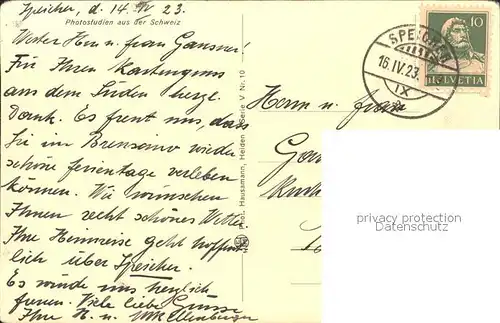 Speicher, d. 14. IV 23.
Photostudien aus der Schweiz
Werter Herr u. frau Gansner!
Für Ihren Kartengruss
aus dem Süden herzl.
Dank. Es freut uns, dass
Sie im Brensino wieder
schöne ferientage verleben
können. Wir wünschen
Ihnen recht schönes Wetter.
Ihre Heimreise geht hoffent
lich über Speicher.
Es würde uns herzlich
freuen. Viele liebe Grüsse
Ihre H. u. Ellenberger
Phot. Hausamann, Heiden Serie V Nr. 10
Herrn u. frau
SPEICHER
16.IV.23.
IX
10
HELVETIA
privacy protection
Datenschutz